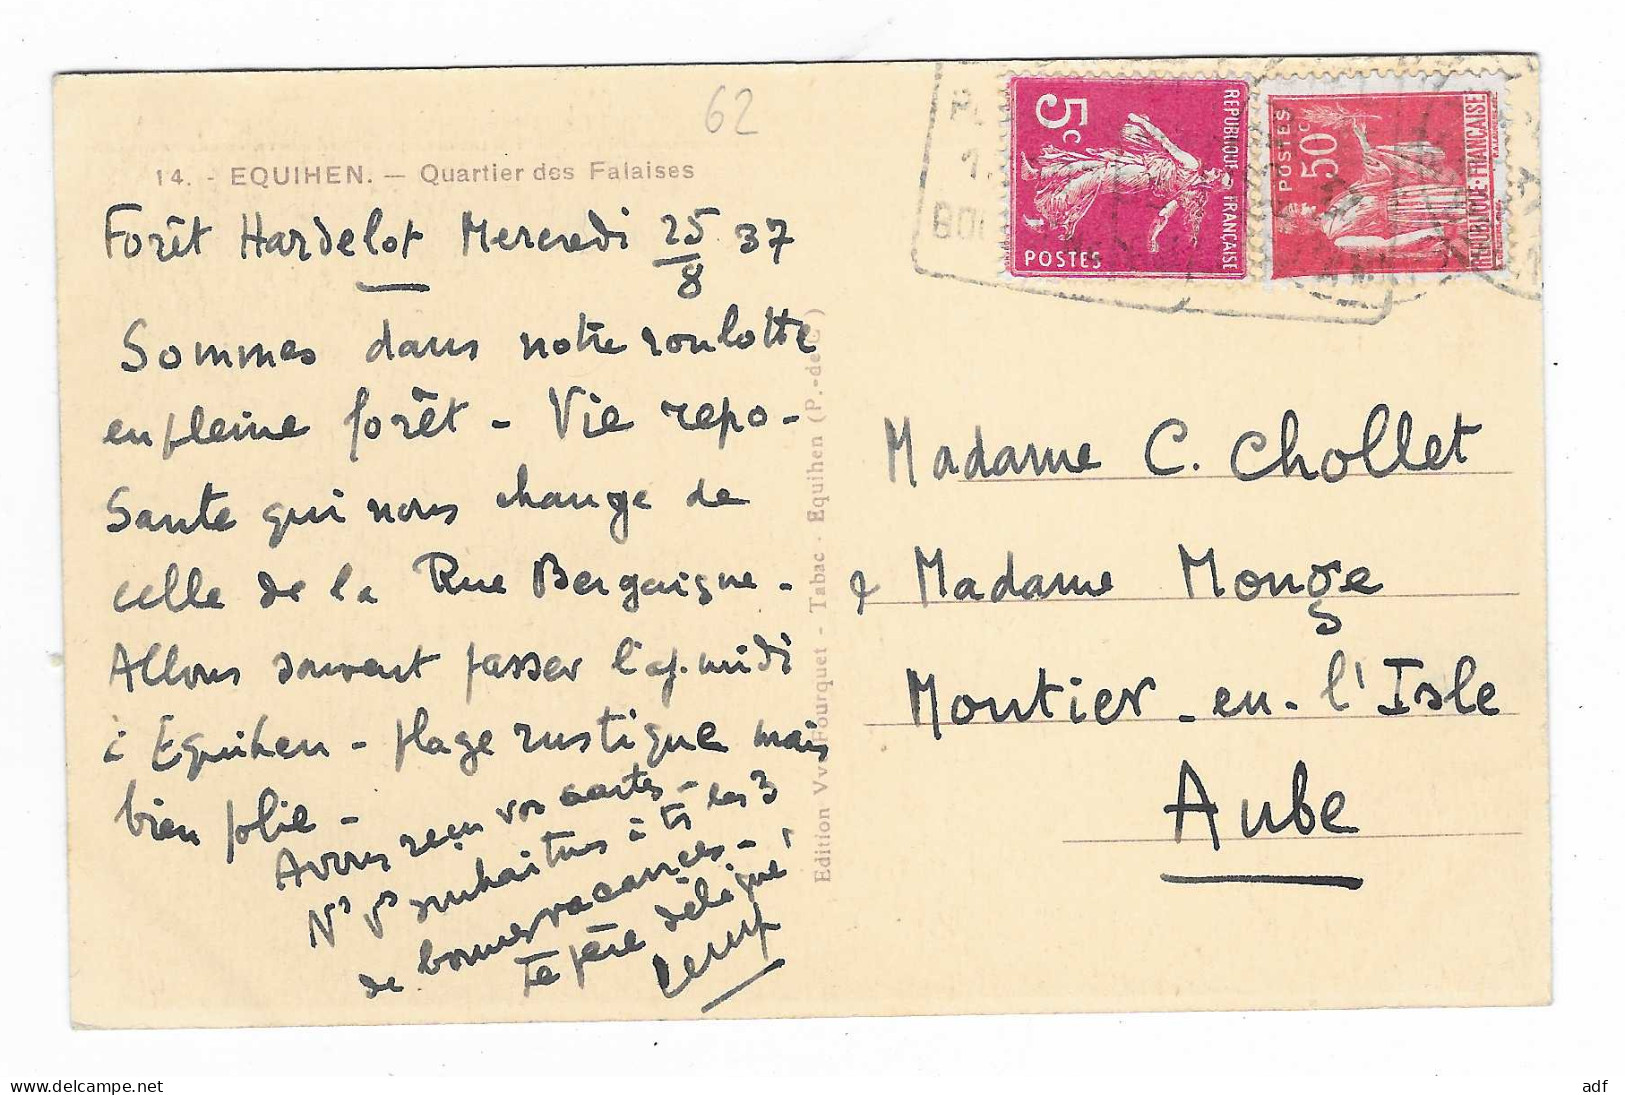 62
14. - EQUIHEN. — Quartier des Falaises
Forêt Hardelot Mercredi 25/8 37
Sommes dans notre roulotte
en pleine forêt - Vie repo-
sante qui nous change de
celle de la Rue Bergaigne -
Allons souvent passer l'ap. midi
à Equihen - plage rustique mais
bien jolie -
Avons reçu vos cartes -
Ns Vs souhaitons à ts les 3
de bonnes vacances -
Le père délégué
Edition Vve Fourquet - Tabac - Equihen (P.-de-C.)
5c
REPUBLIQUE FRANÇAISE
POSTES
POSTES
50c
REPUBLIQUE FRANÇAISE
BOU
Madame C. Chollet
& Madame Monge
Montier-en-l'Isle
Aube
www.delcampe.net
adf